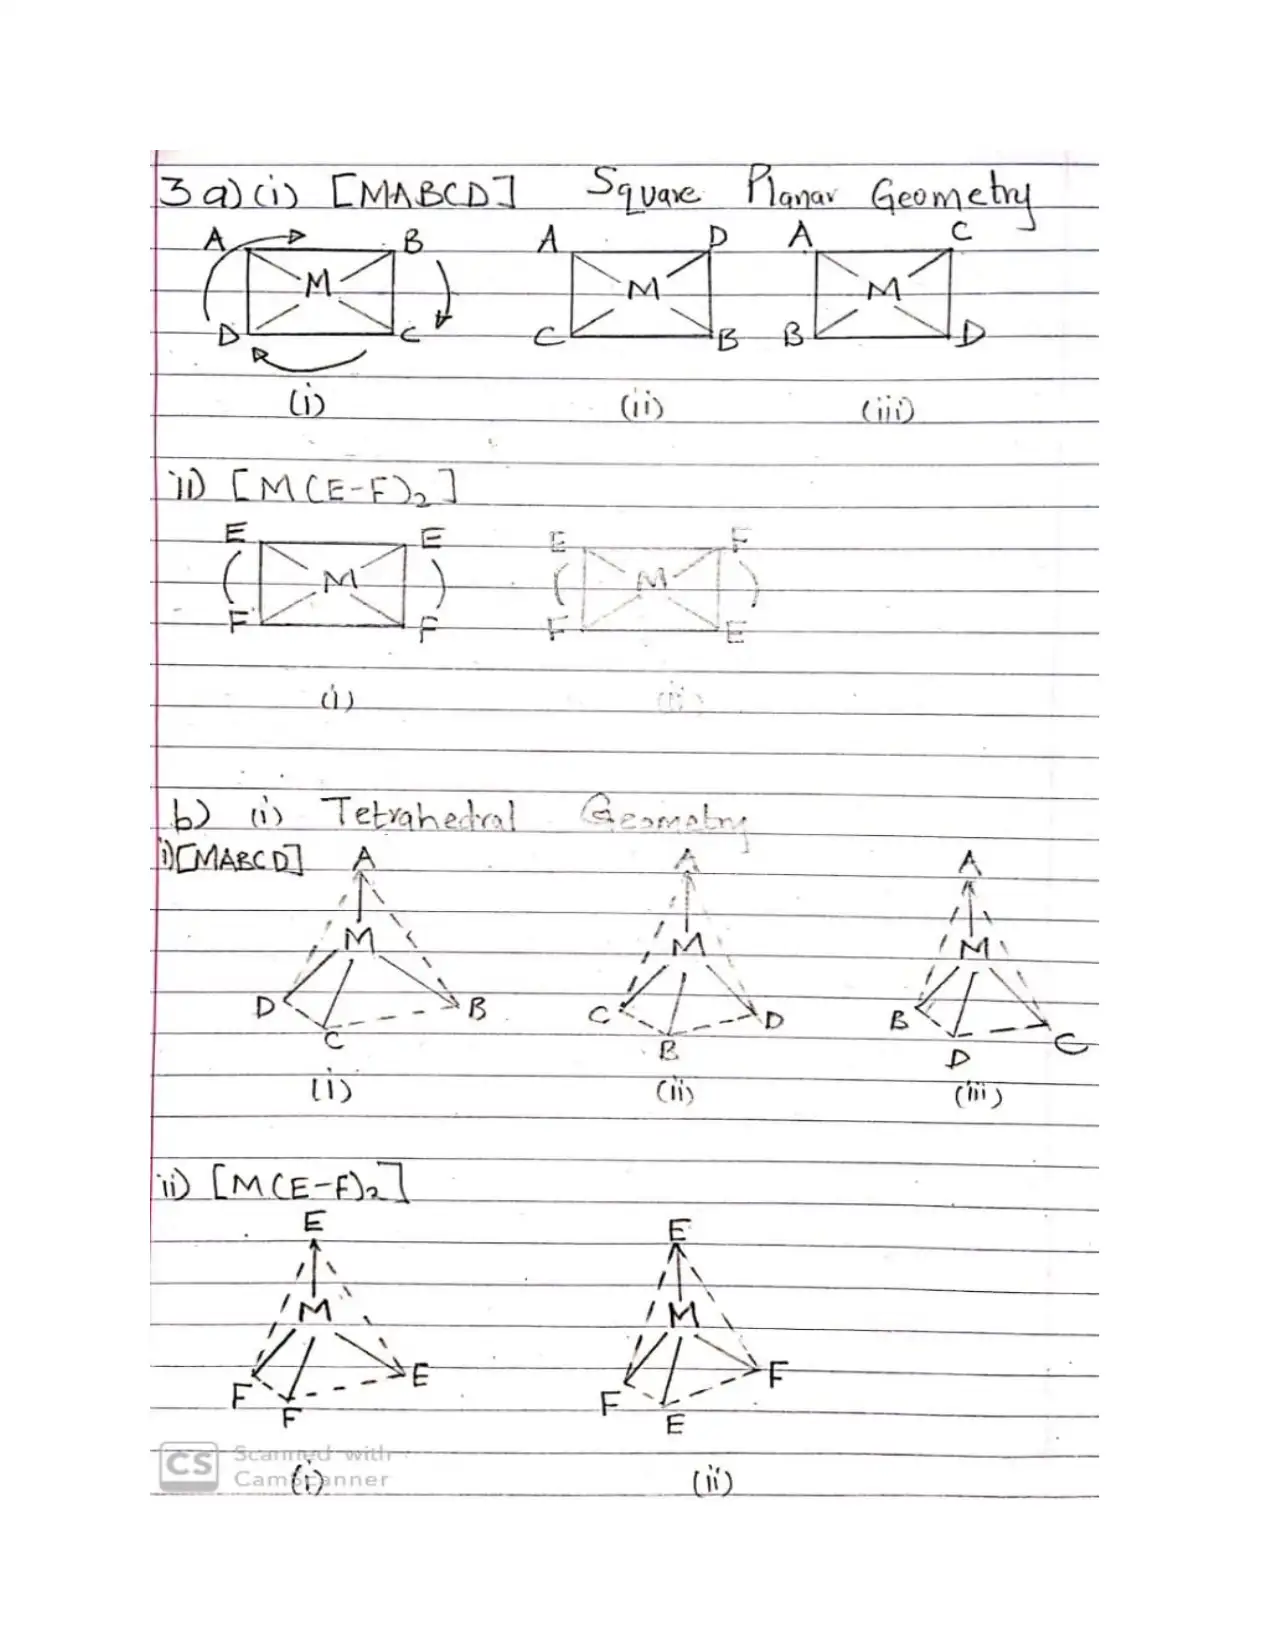 3 a) (i) [MABCD] Square Planar Geometry
A B A D A C
M M M
D C C B B D
(i) (ii) (iii)
ii) [M(E-F)₂]
E E E F
M M
F F F E
(i) (ii)
b) (i) Tetrahedral Geometry
i) [MABCD] A A A
M M M
D B C D B C
C B D
(i) (ii) (iii)
ii) [M(E-F)₂]
E E
M M
F E F F
F E
CS Scanned with
CamScanner
(i) (ii)